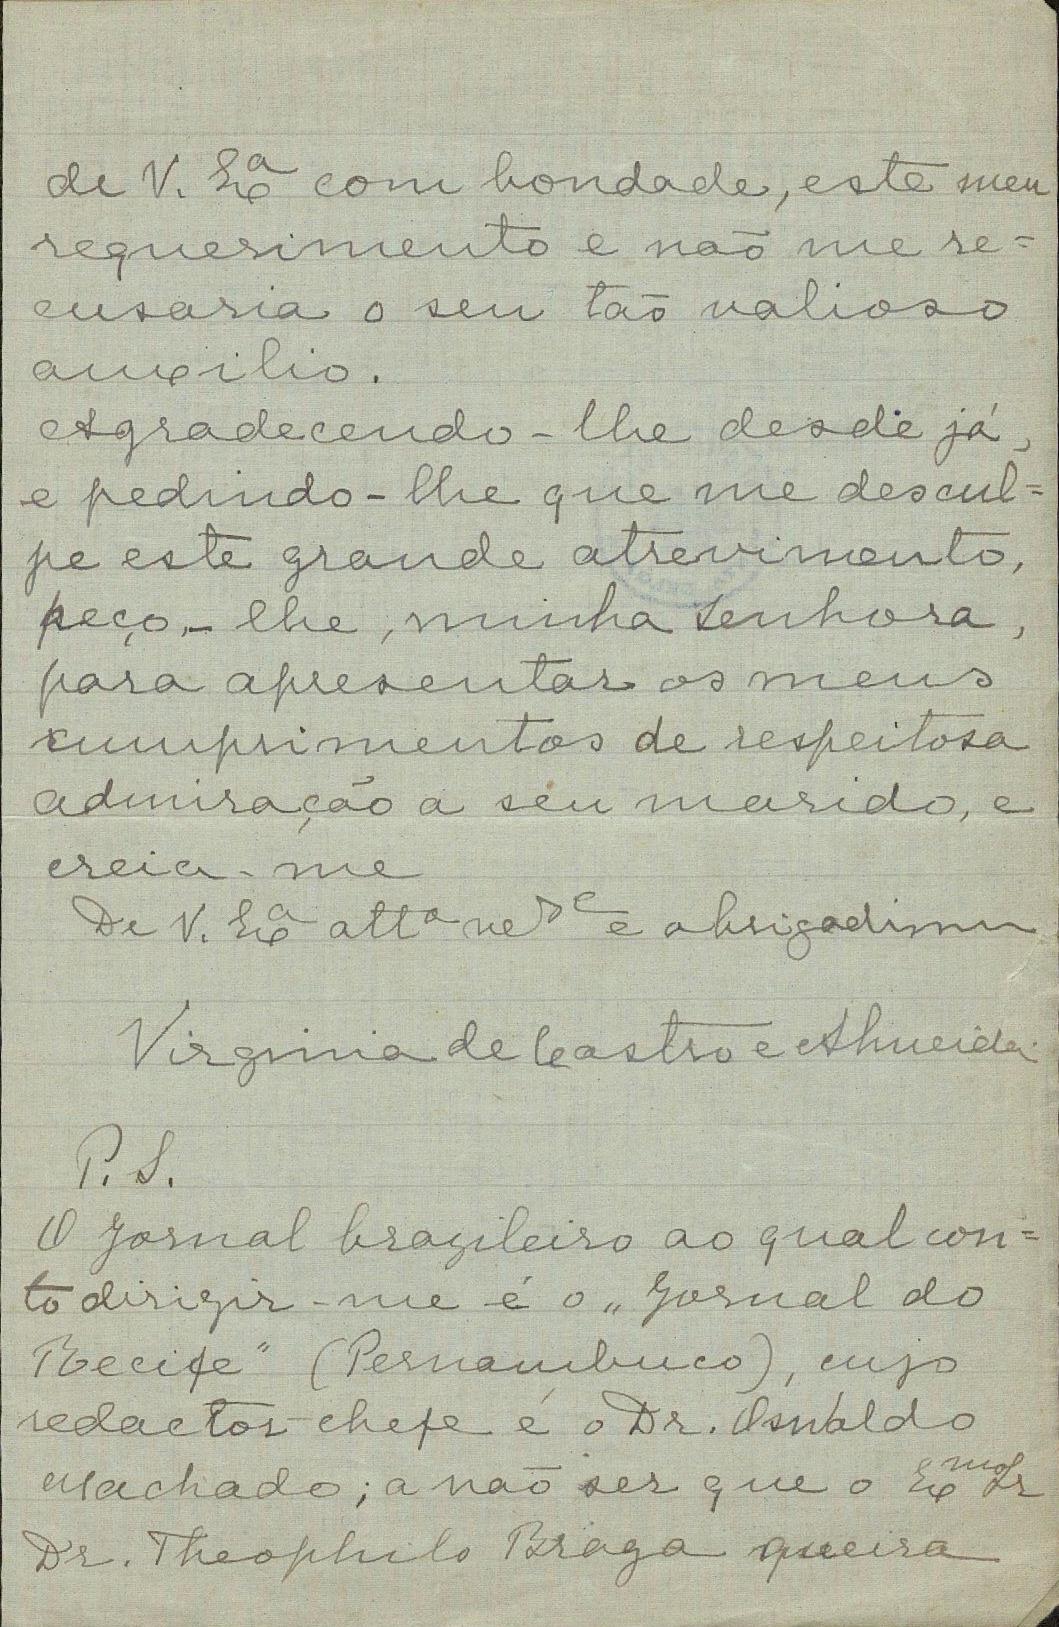 de V. Exª com bondade, este meu
requerimento e não me re=
cusaria o seu tão valioso
auxilio.
Agradecendo-lhe desde já,
e pedindo-lhe que me descul=
pe este grande atrevimento,
peço,-lhe, minha Senhora,
para apresentar os meus
cumprimentos de respeitosa
admiração a seu marido, e
creia-me
De V. Exª attª ve^de e obrigadima
Virginia de Castro e Almeida
P. S.
O Jornal brazileiro ao qual con=
to dirigir-me é o „Jornal do
Recife" (Pernambuco), cujo
redactor-chefe é o Dr. Osvaldo
Machado; a não ser que o Ex^mo Sr
Dr. Theophilo Braga queira